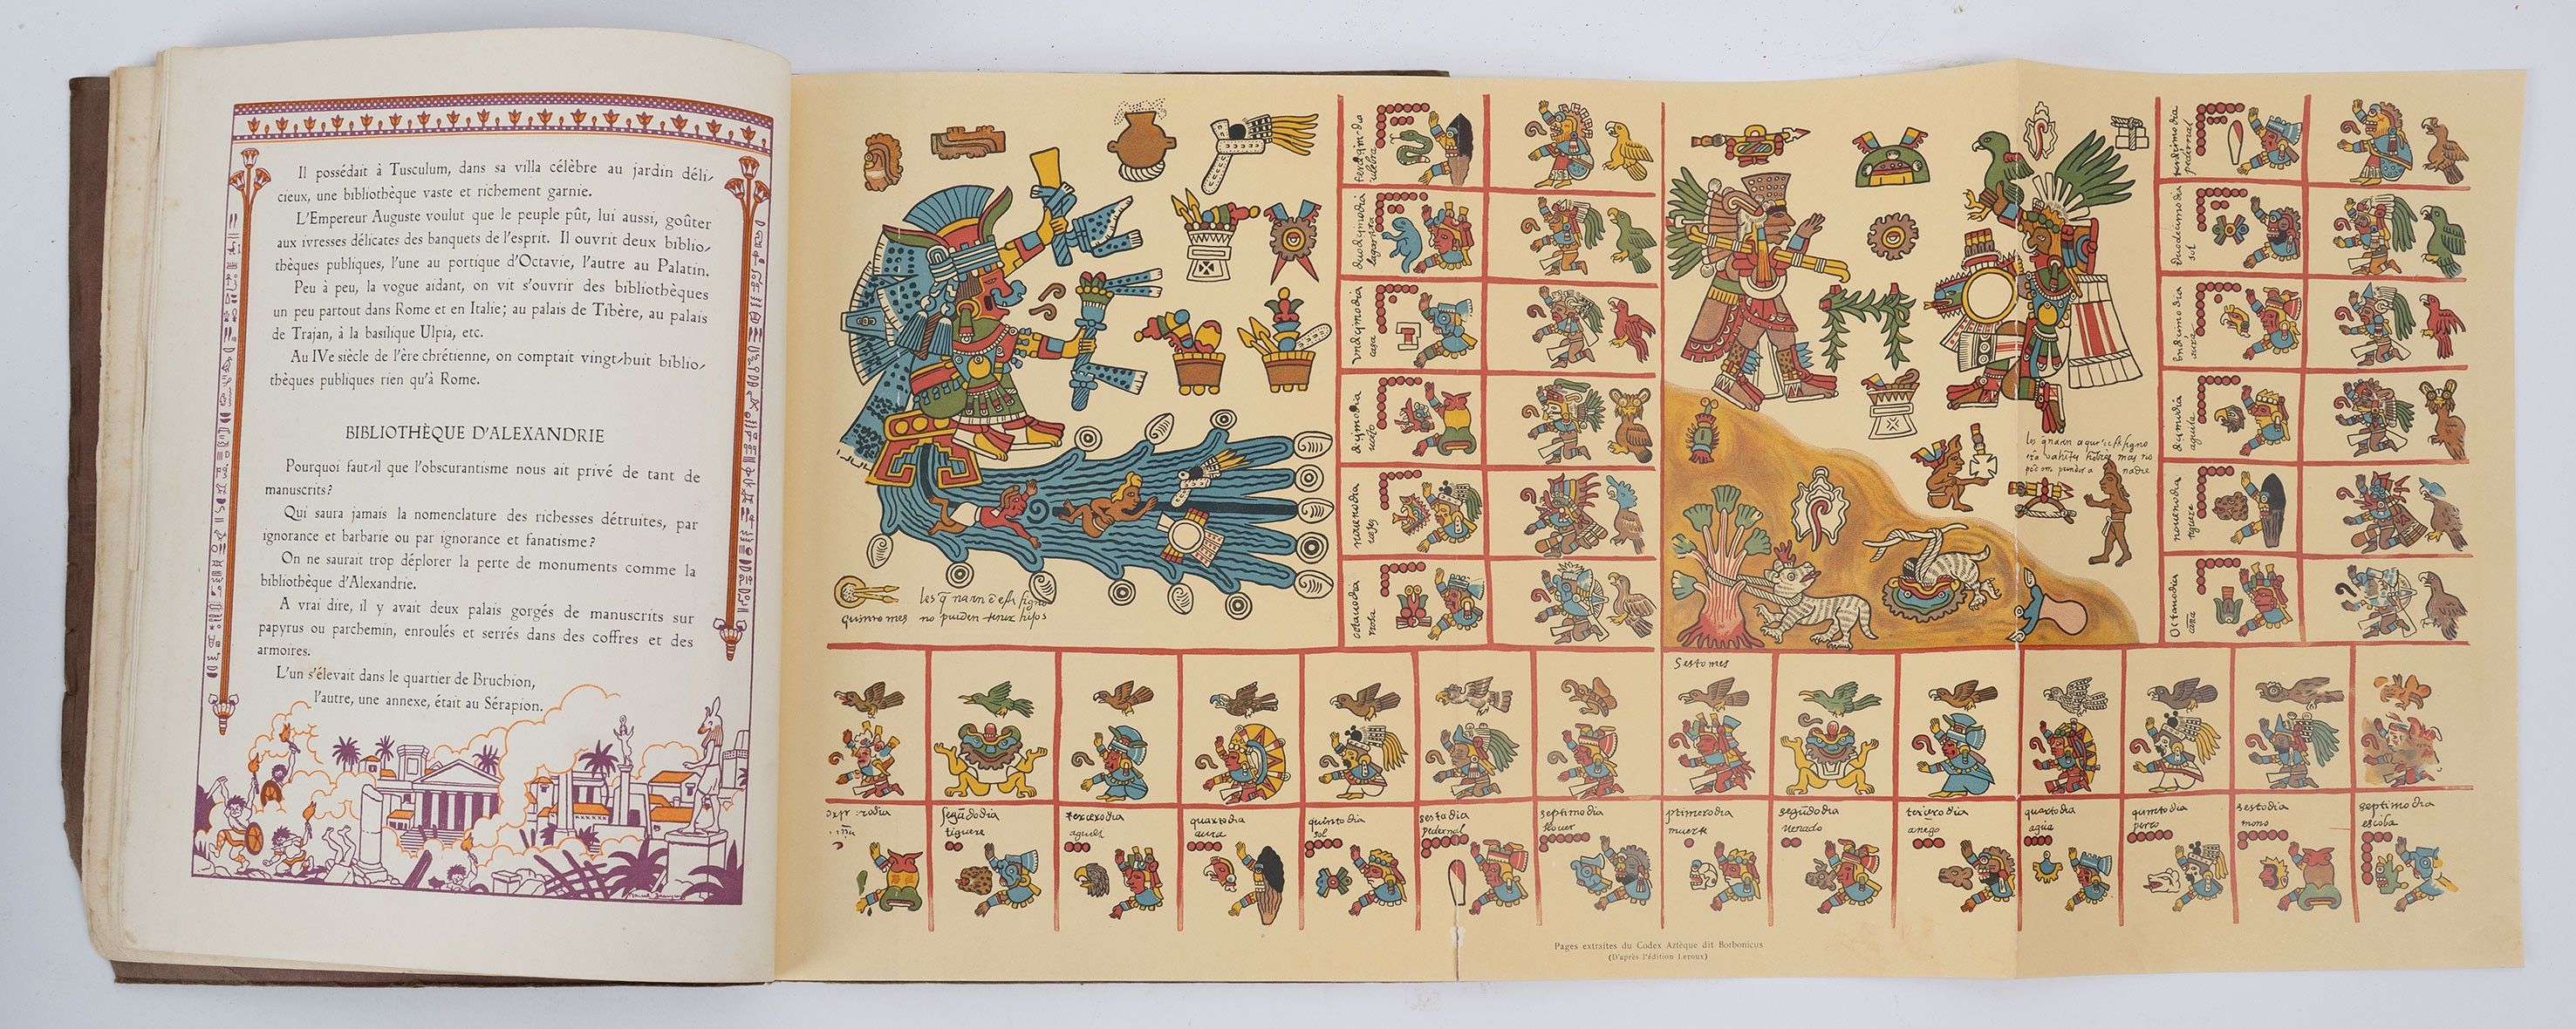 Il possédait à Tusculum, dans sa villa célèbre au jardin déli-
cieux, une bibliothèque vaste et richement garnie.
L'Empereur Auguste voulut que le peuple pût, lui aussi, goûter
aux ivresses délicates des banquets de l'esprit. Il ouvrit deux biblio-
thèques publiques, l'une au portique d'Octavie, l'autre au Palatin.
Peu à peu, la vogue aidant, on vit s'ouvrir des bibliothèques
un peu partout dans Rome et en Italie; au palais de Tibère, au palais
de Trajan, à la basilique Ulpia, etc.
Au IVe siècle de l'ère chrétienne, on comptait vingt-huit biblio-
thèques publiques rien qu'à Rome.
BIBLIOTHÈQUE D'ALEXANDRIE
Pourquoi faut-il que l'obscurantisme nous ait privé de tant de
manuscrits?
Qui saura jamais la nomenclature des richesses détruites, par
ignorance et barbarie ou par ignorance et fanatisme?
On ne saurait trop déplorer la perte de monuments comme la
bibliothèque d'Alexandrie.
A vrai dire, il y avait deux palais gorgés de manuscrits sur
papyrus ou parchemin, enroulés et serrés dans des coffres et des
armoires.
L'un s'élevait dans le quartier de Bruchion,
l'autre, une annexe, était au Sérapion.
quinto mes
no pueden tener hijos
segūdo dia
tiguere
tercero dia
aguila
quarto dia
aura
quinto dia
sol
sesto dia
pedernal
septimo dia
llouer
octauo dia
duodecimo dia
lagartixa
undecimo dia
casa
decimo dia
Sesto mes
primero dia
muerte
segūdo dia
venado
tercero dia
conego
quarto dia
agua
quinto dia
perro
sesto dia
mono
septimo dia
escoba
octauo dia
caña
noueno dia
tiguere
decimo dia
aguila
duodecimo dia
sol
pedernal
Pages extraites du Codex Aztèque dit Borbonicus
(D'après l'édition Leroux)